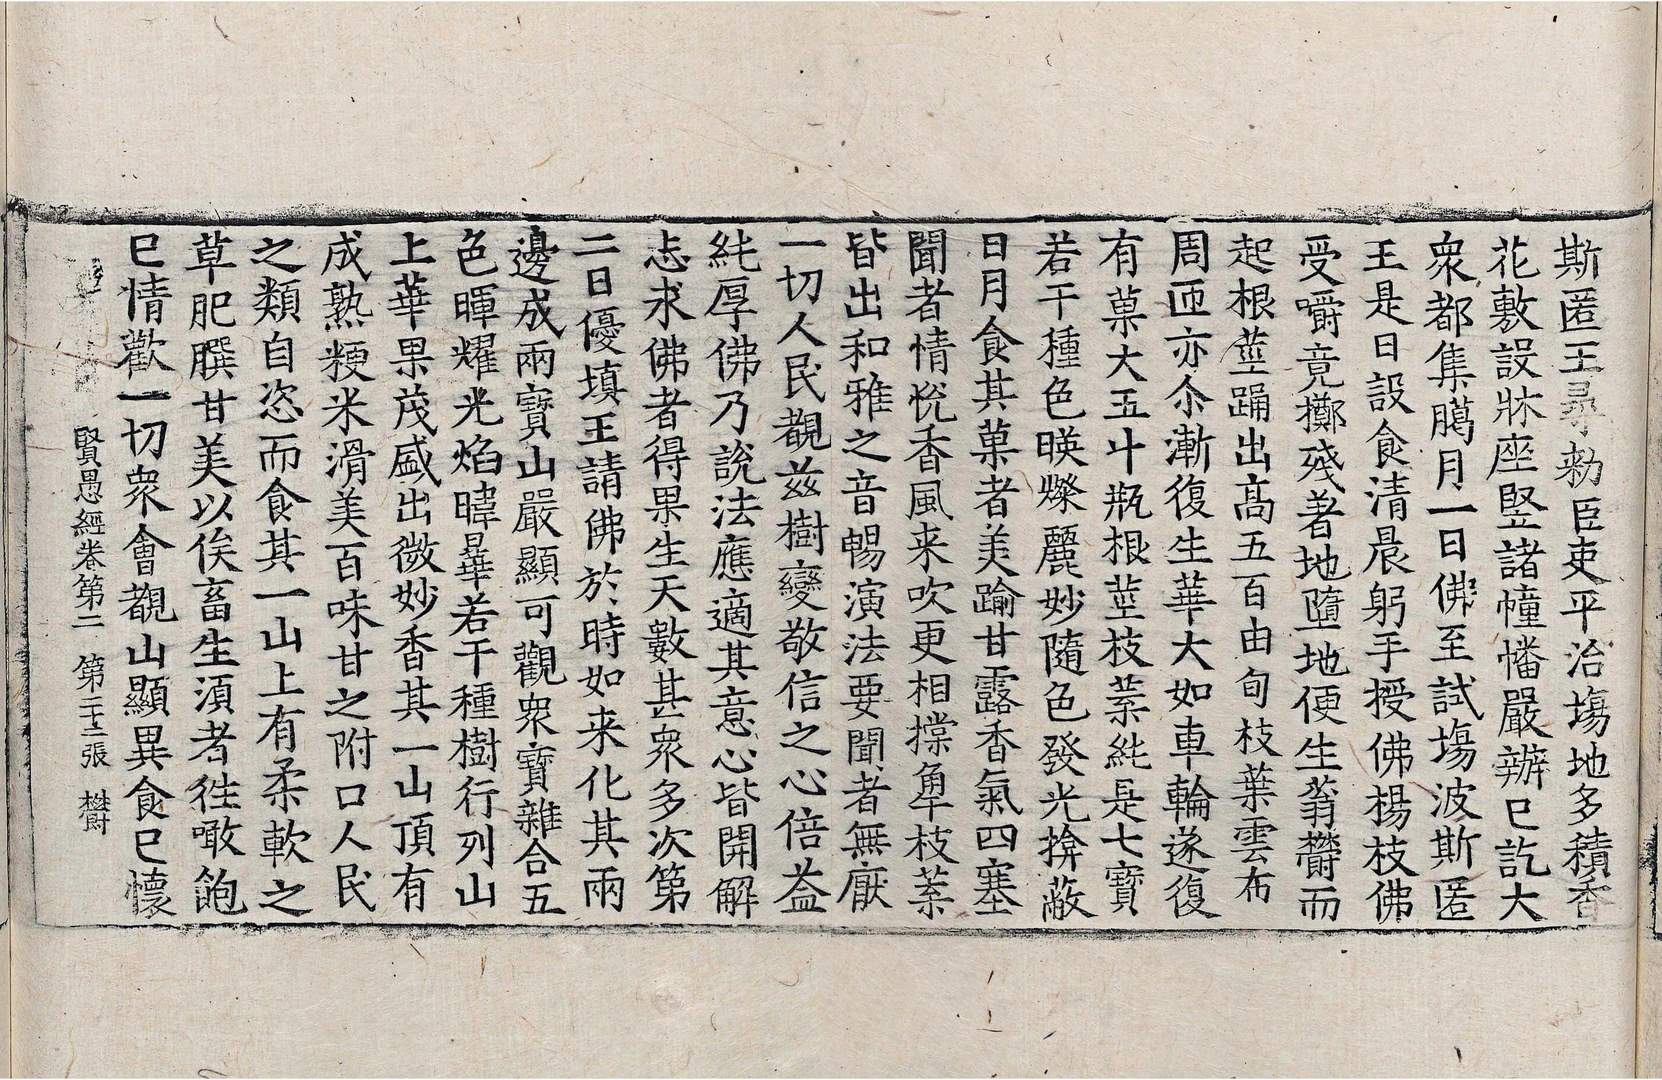 斯匿王尋勑臣吏平治塲地多積香
花敷設牀座竪諸幢幡嚴辦已訖大
衆都集臈月一日佛至試塲波斯匿
王是日設食清晨躬手授佛楊枝佛
受嚼竟擲殘著地墮地便生蓊欝而
起根莖踊出高五百由旬枝葉雲布
周匝亦尒漸復生華大如車輪遂復
有菓大五斗瓶根莖枝葉純是七寶
若干種色暎㷮麗妙隨色發光揜蔽
日月食其菓者美踰甘露香氣四塞
聞者情悅香風来吹更相撑𧢲枝葉
皆出和雅之音暢演法要聞者無厭
一切人民覩兹樹變敬信之心倍益
純厚佛乃說法應適其意心皆開解
志求佛者得果生天數甚衆多次第
二日優填王請佛於時如来化其兩
邊成兩寶山嚴顯可觀衆寶雜合五
色暉耀光焰暐曅若干種樹行列山
上華果茂盛出微妙香其一山頂有
成熟粳米滑美百味甘之附口人民
之類自恣而食其一山上有柔軟之
草肥膬甘美以俟畜生湏者徃噉飽
已情歡一切衆會覩山顯異食已懷
賢愚經卷第二　第二十三張　欝